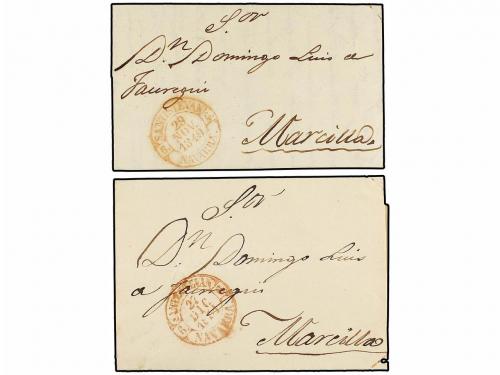 S.or
D.n Domingo Luis a
Jauregui
Marcilla
29
NOV.
1849
NAVARRA.
S.or
D.n Domingo Luis
a Jauregui
Marcilla
DIC.
NAVARRA